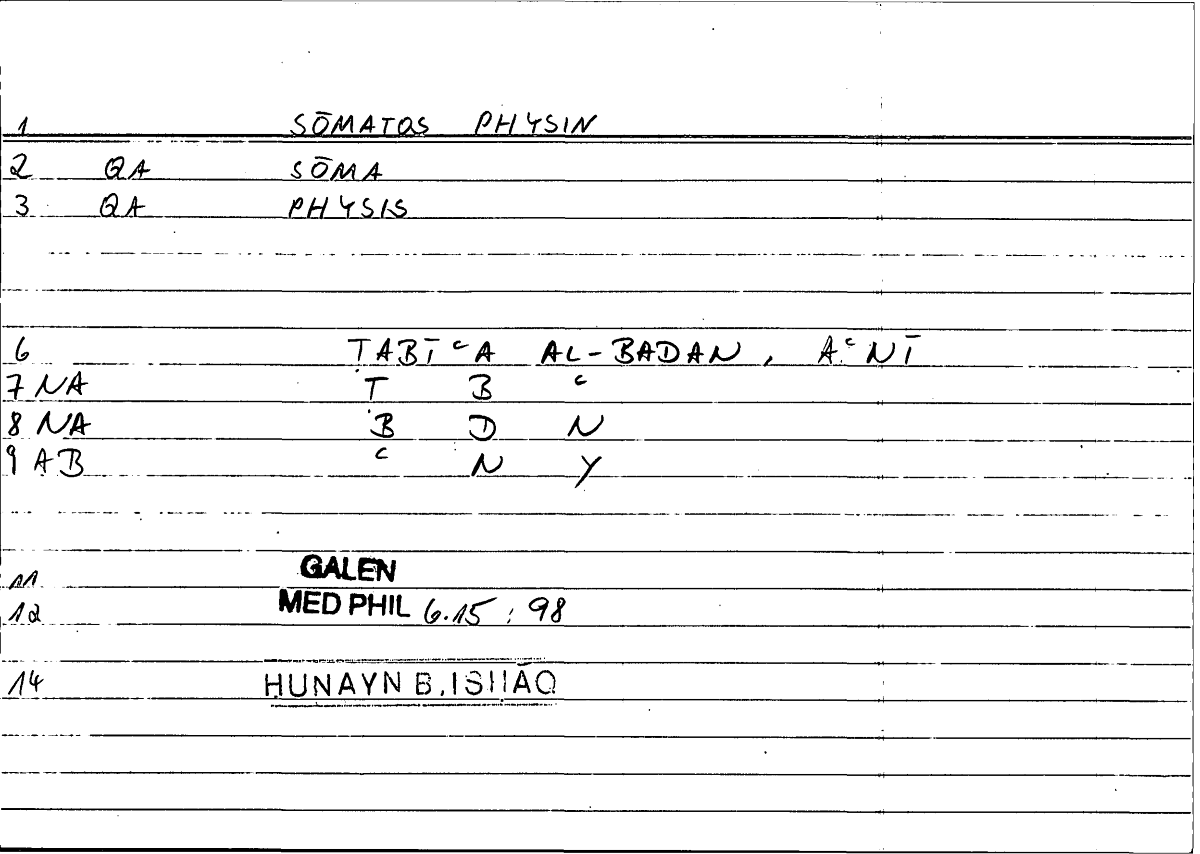 1 SŌMATOS PHYSIN
2 QA SŌMA
3 QA PHYSIS
6 TABĪʿA AL-BADAN, AʿNĪ
7 NA T B ʿ
8 NA B D N
9 AB ʿ N Y
11 GALEN
12 MED PHIL 6.15 : 98
14 HUNAYN B. ISHĀQ